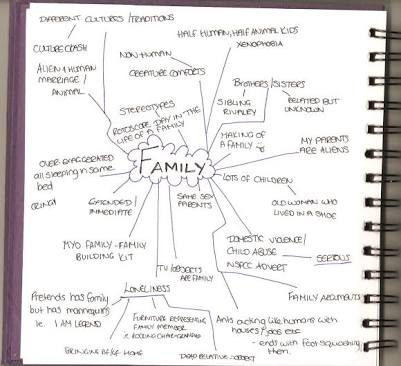 DIFFERENT CULTURES/TRADITIONS
CULTURE CLASH
ALIEN & HUMAN
MARRIAGE/
ANIMAL
NON-HUMAN
CREATURE COMFORTS
HALF HUMAN, HALF ANIMAL KIDS
XENOPHOBIA
BROTHERS/SISTERS
SIBLING
RIVALRY
RELATED BUT
UNKNOWN
STEREOTYPES
ROTOSCOPE DAY IN THE
LIFE OF A FAMILY
MAKING OF
A FAMILY
MY PARENTS
ARE ALIENS
FAMILY
OVER EXAGGERATED
all sleeping in same
bed
LOTS OF CHILDREN
OLD WOMAN WHO
LIVED IN A SHOE
EXTENDED/
IMMEDIATE
SAME SEX
PARENTS
MYO FAMILY-FAMILY
BUILDING KIT
DOMESTIC VIOLENCE/
CHILD ABUSE
SERIOUS
NSPCC ADVERT
TV/OBJECTS
ARE FAMILY
FAMILY ARGUMENTS
LONELINESS
Pretends has family
but has mannequins
ie. I AM LEGEND
FURNITURE REPRESENTING
FAMILY MEMBER
ie ROCKING CHAIR=GRANDAD
Ants acting like humans with
houses/jobs etc
- ends with foot squashing
them.
DEAD RELATIVE=OBJECT